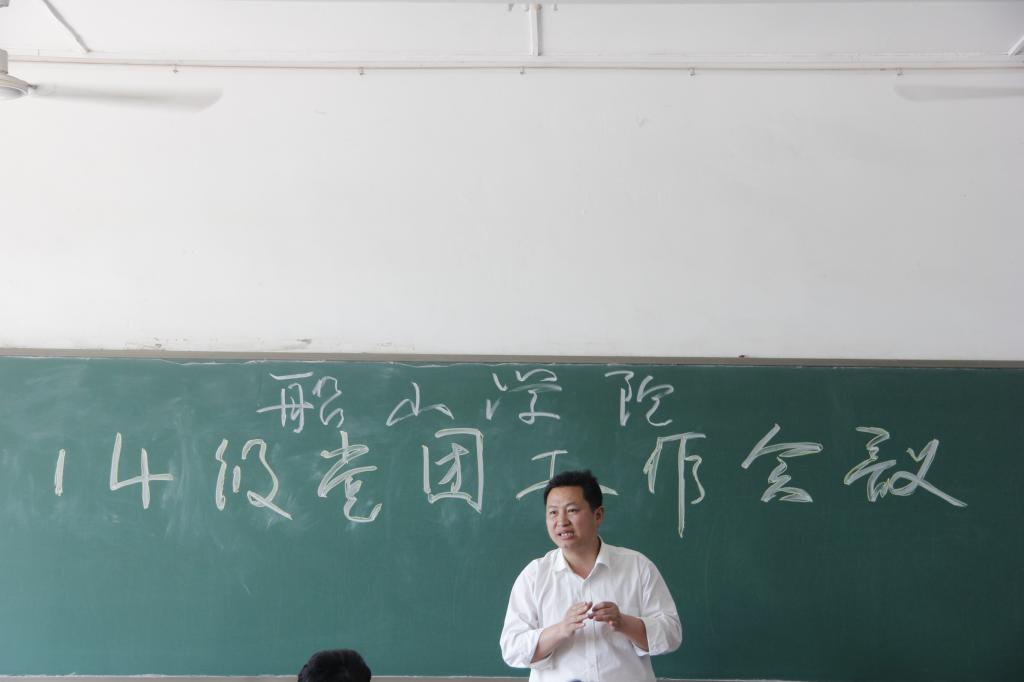 船山学院
14级党团工作会议